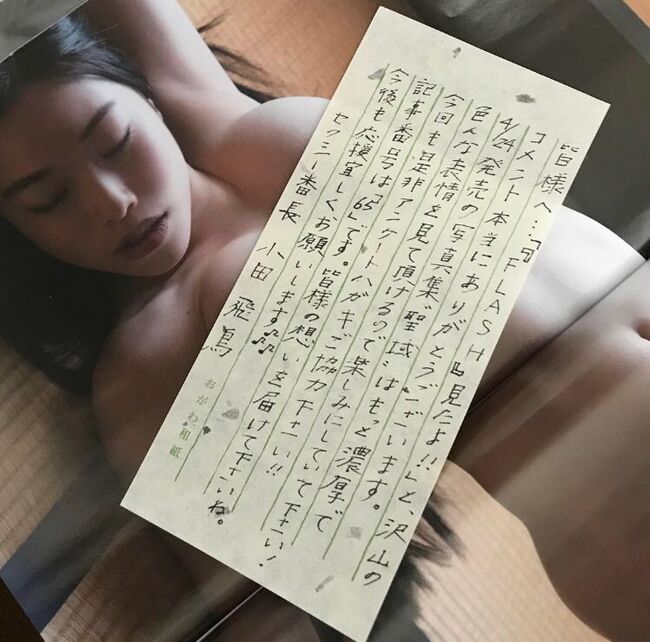 皆様へ…「『FLASH』見たよ!!」と、沢山の
コメント本当にありがとうございます。
4/24発売の写真集"聖域"はもっと濃厚で
色んな表情を見て頂けるので楽しみにしていて下さい!
今回も是非アンケートハガキご協力下さい!!
記事番号は「65」です。皆様の想いを届けて下さいね。
今後も応援宜しくお願いします♫♫
セクシー番長 小田 飛鳥
おがわ和紙